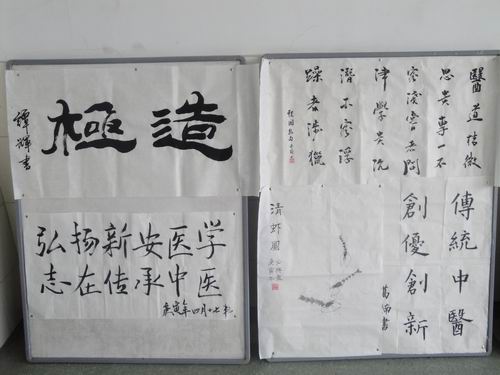 造極
弘扬新安医学
志在传承中医
庚寅年四月十七书
醫道精微
思貴專一不
容淺嘗者問
津學貴沉
潛不容浮
躁者涉獵
傳統中醫
創優創新
清虾图